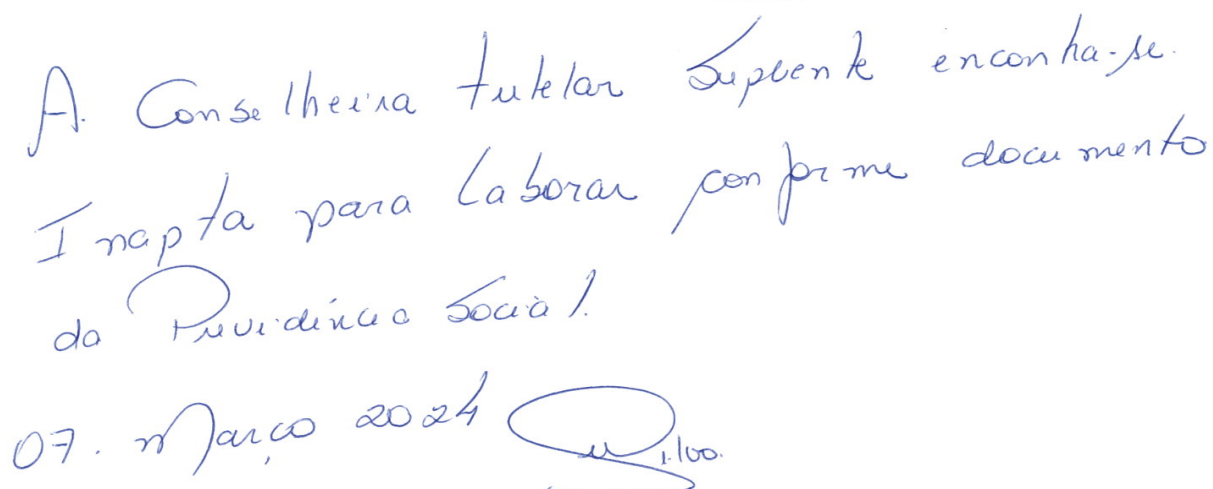 A. Conselheira tutelar Suplente encontra-se.
Inapta para Laborar conforme documento
da Previdência Social.
07. Março 2024